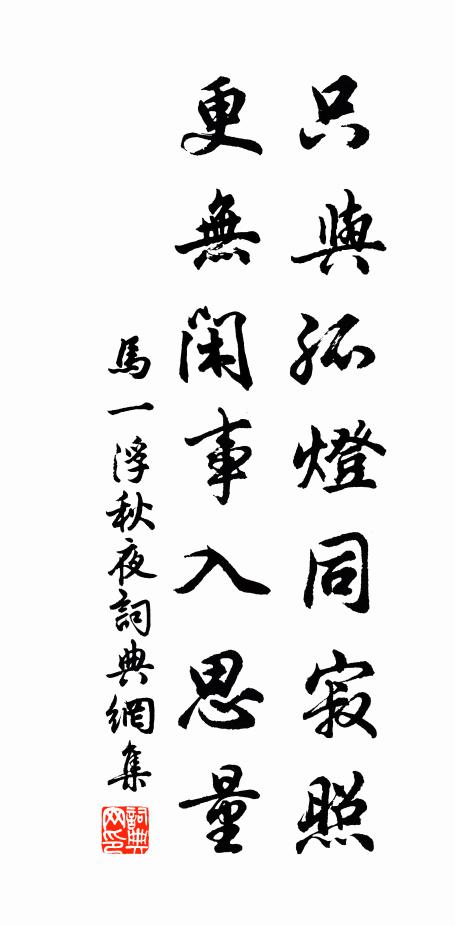 只與孤燈同寂照
更無閑事入思量
馬一浮秋夜詞典網集
詞典網印